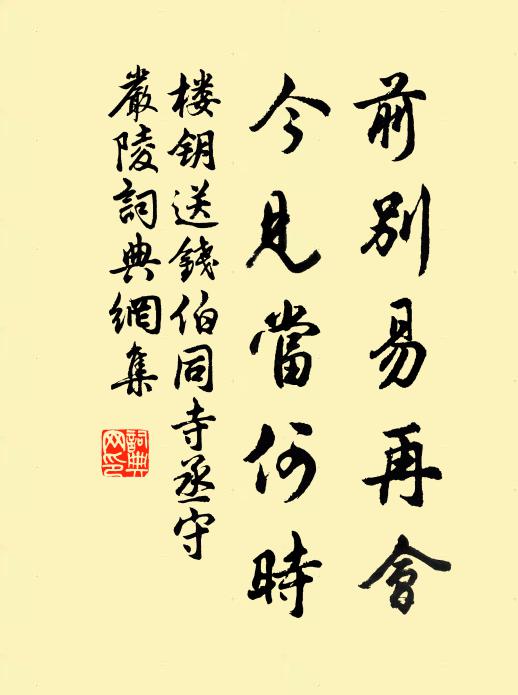 前別易再會
今見當何時
楼鑰送錢伯同寺丞守
嚴陵詞典網集
詞典网印